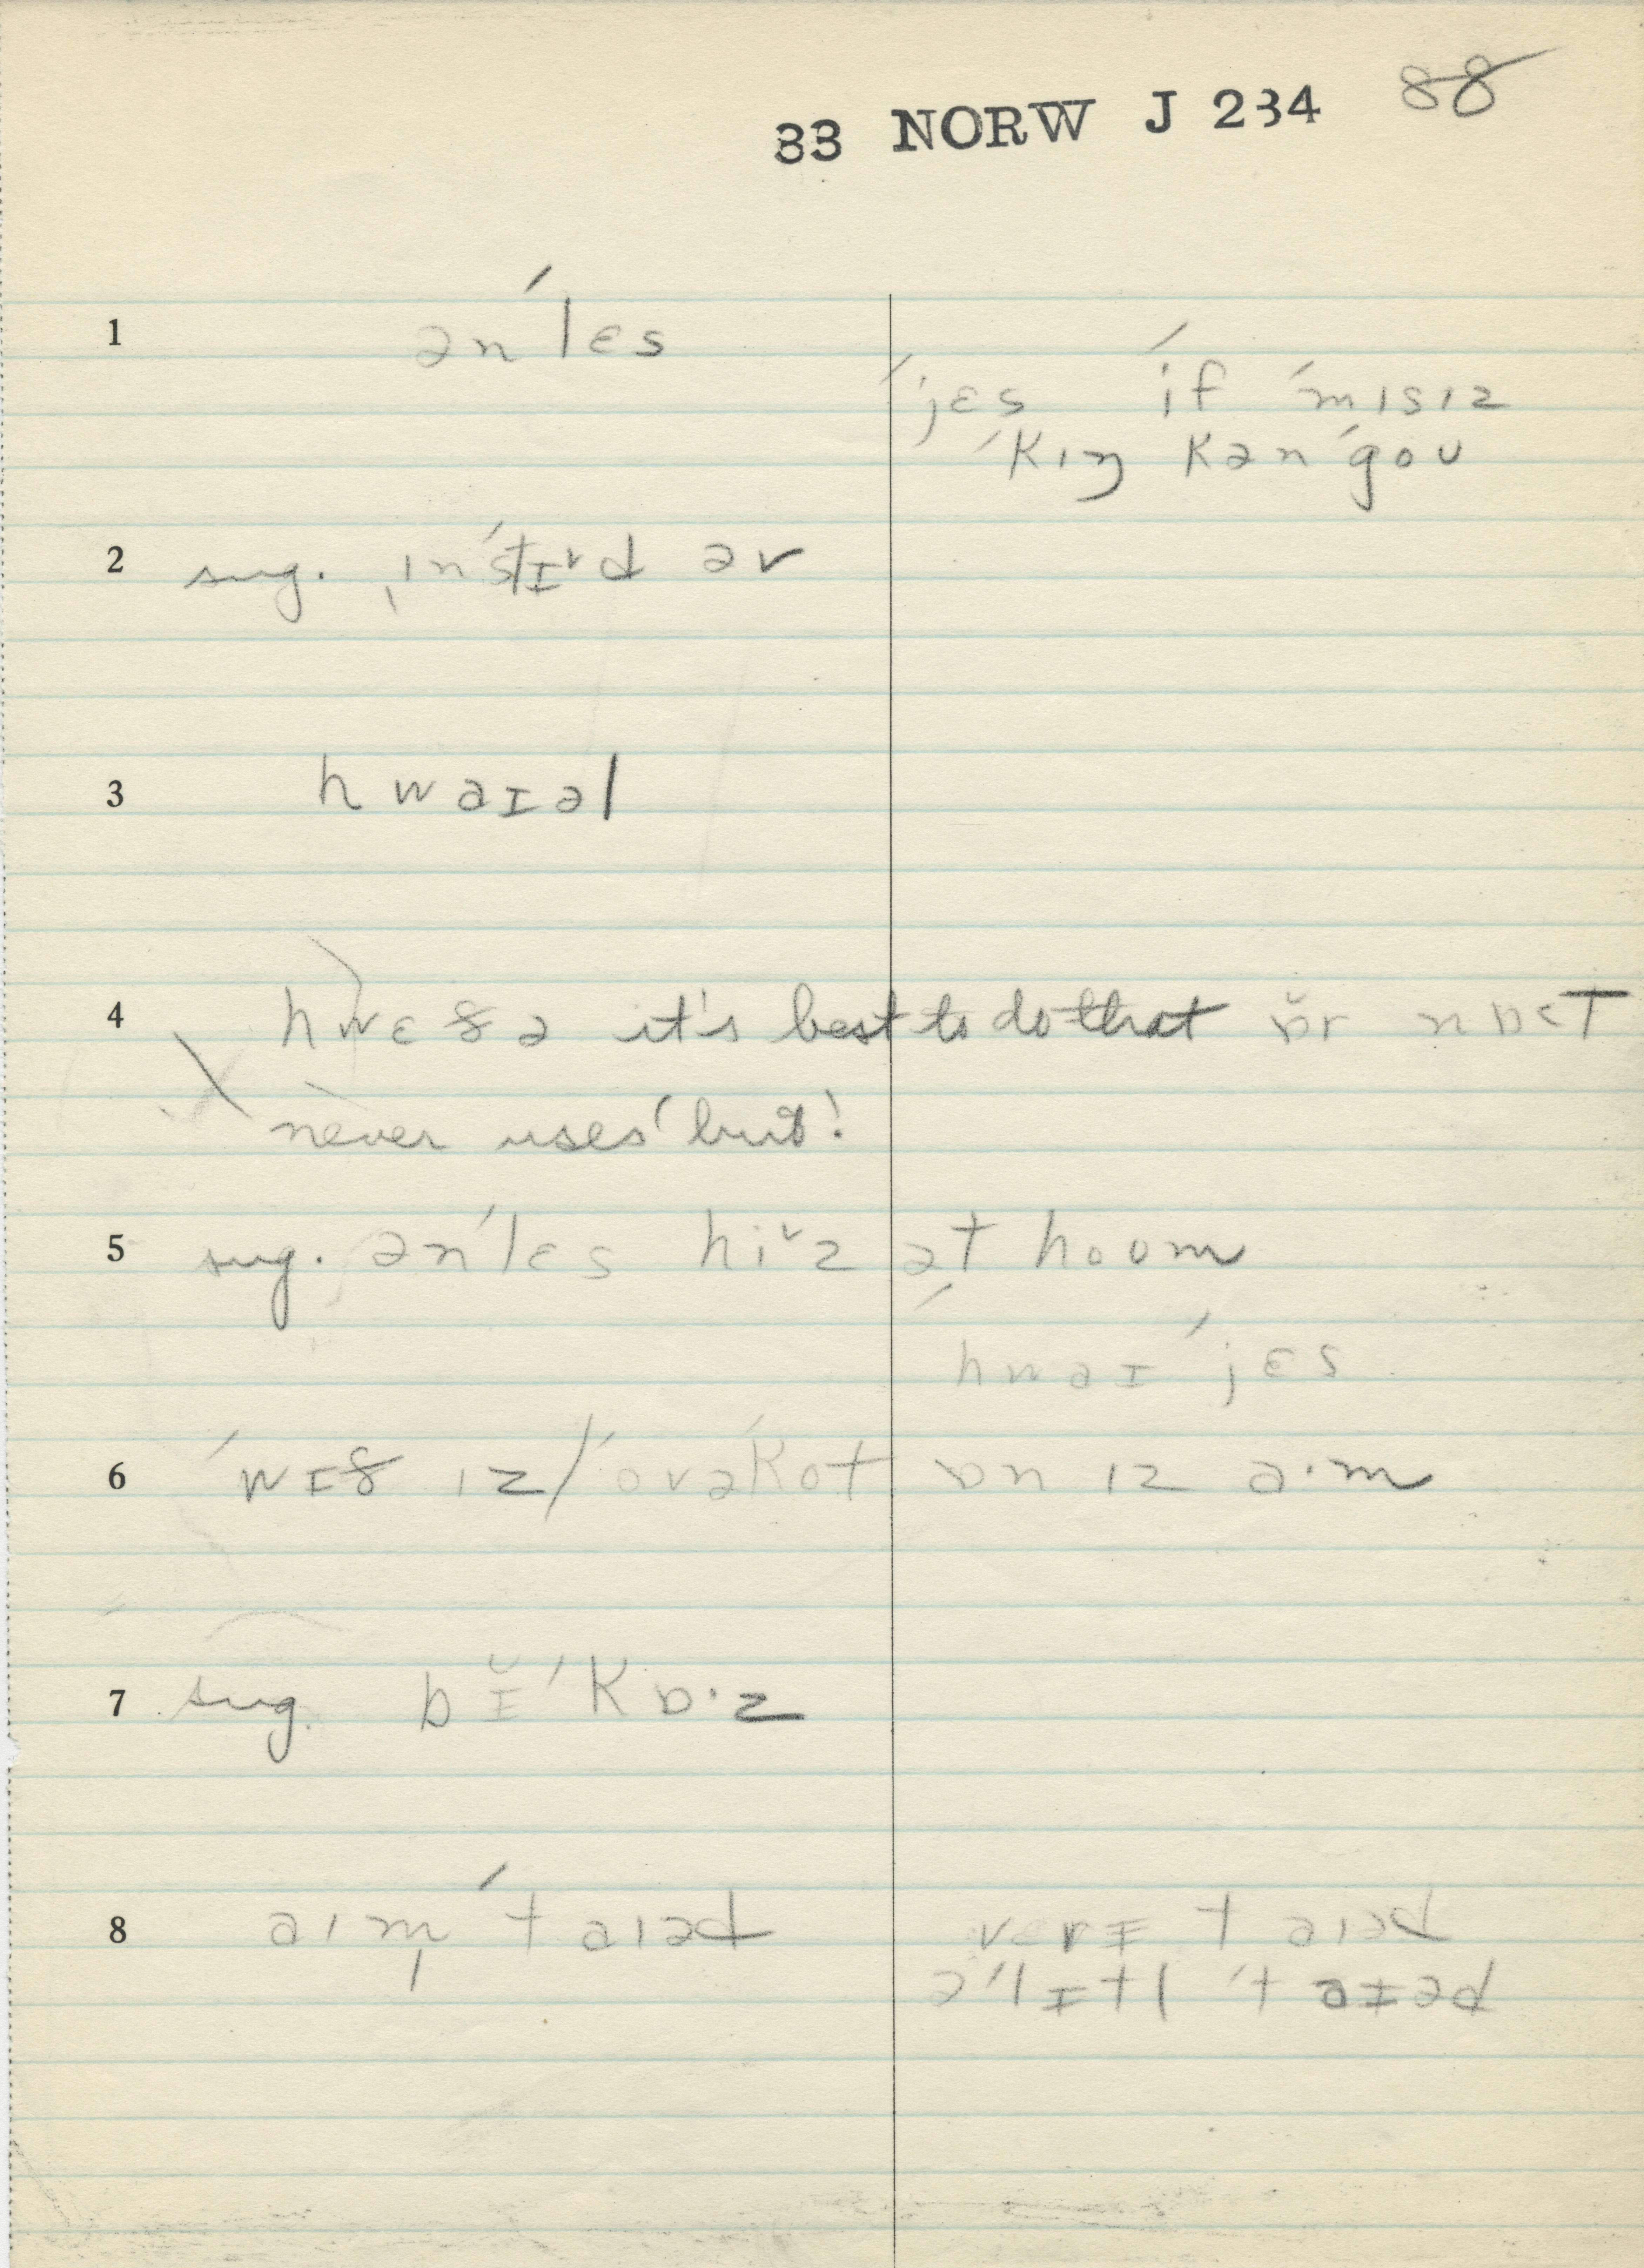 33 NORW J 234 88
1 ən'lɛs
'jɛs 'if 'mɪsɪz
'kɪŋ kən'goʊ
2 sug. ˌɪn'stɪ˅d əv
3 hwaɪəl
4 hwɛðə it's best to do that ɒ̆r nɒ<T
never uses 'but'
5 sug. ən'lɛs hi˅z ət hoʊm
hwaɪ 'jɛs
6 'wɪð ɪz / 'ovə'kot ɒn ɪz a·m
7 sug. bɪ̆'kɒ·z
8 aɪm̩ 'taɪəd
vɛrɪ taɪəd
ə'lɪtl 'taɪəd